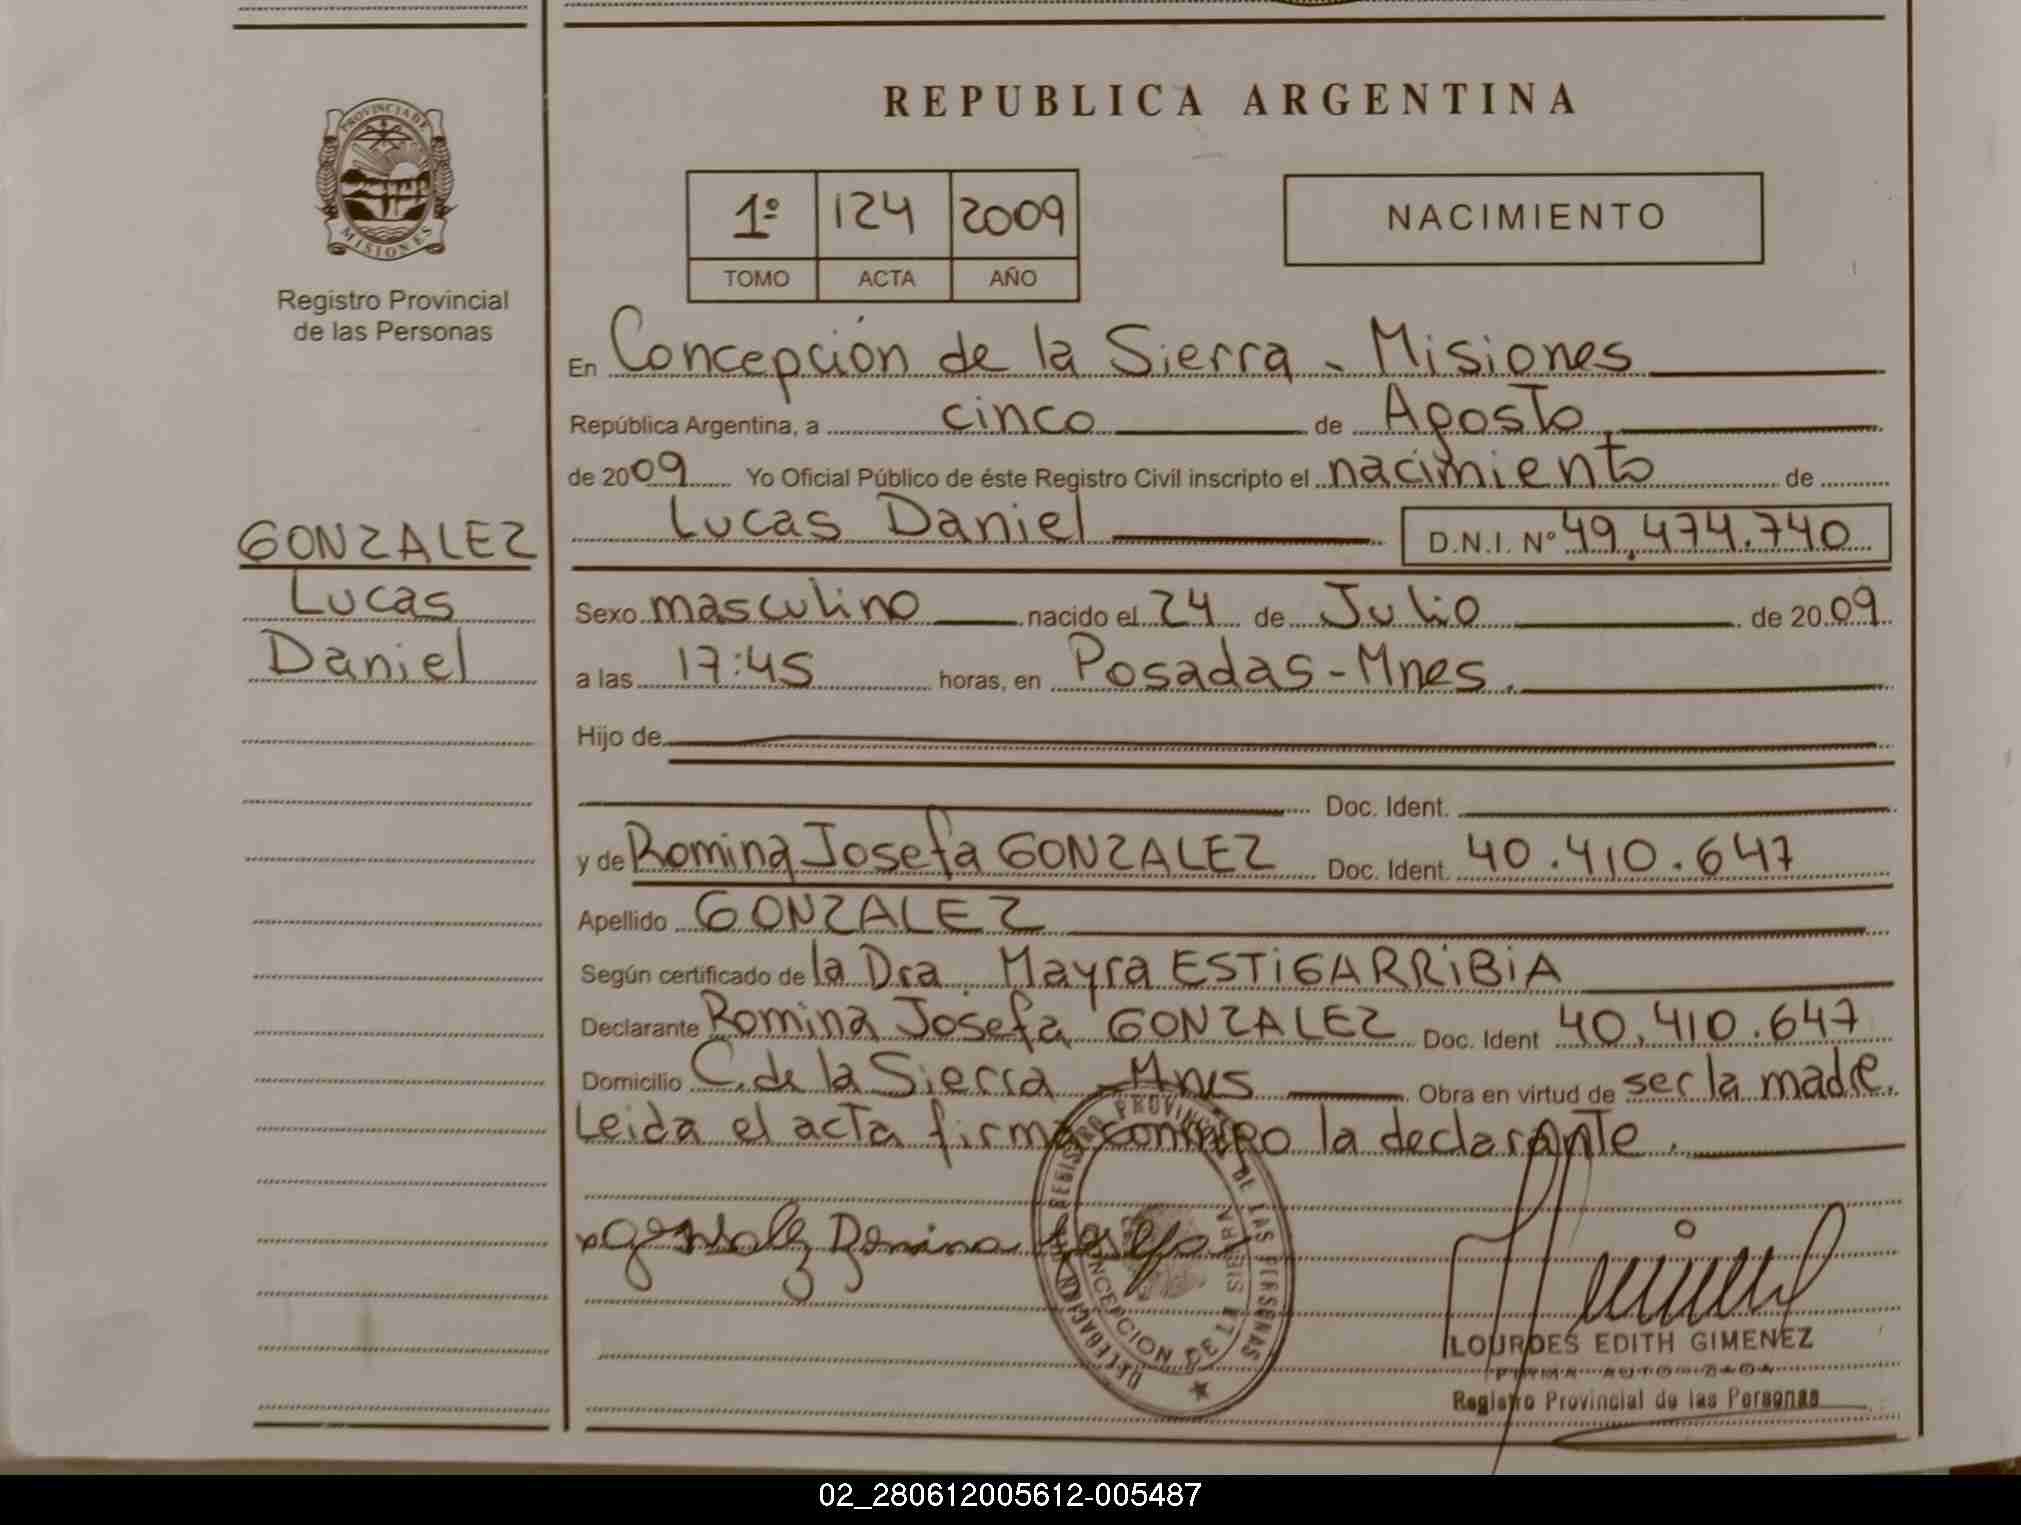 PROVINCIA DE
MISIONES
Registro Provincial
de las Personas
GONZALEZ
Lucas
Daniel
REPUBLICA ARGENTINA
1º 124 2009
TOMO ACTA AÑO
NACIMIENTO
En Concepción de la Sierra - Misiones
República Argentina, a cinco de Agosto
de 2009 Yo Oficial Público de éste Registro Civil inscripto el nacimiento de
Lucas Daniel D.N.I. Nº 49.474.740
Sexo masculino nacido el 24 de Julio de 2009
a las 17:45 horas, en Posadas - Mnes.
Hijo de
Doc. Ident.
y de Romina Josefa GONZALEZ Doc. Ident. 40.410.647
Apellido GONZALEZ
Según certificado de la Dra. Mayra ESTIGARRIBIA
Declarante Romina Josefa GONZALEZ Doc. Ident 40.410.647
Domicilio C. de la Sierra - Mnes Obra en virtud de ser la madre.
Leida el acta firma conmigo la declarante.
Gonzalez Romina Josefa
REGISTRO PROVINCIAL DE LAS PERSONAS
DELEGACION
CONCEPCION DE LA SIERRA
LOURDES EDITH GIMENEZ
FIRMA AUTORIZADA
Registro Provincial de las Personas
02_280612005612-005487